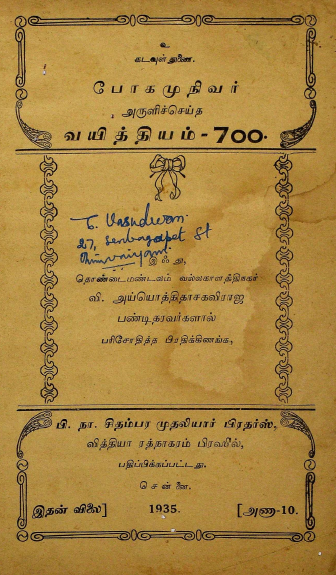 உ
கடவுள் துணை.
போகமுநிவர்
அருளிச்செய்த
வயித்தியம் - 700.
T. Vasudevan
27, Senbagapet St
இஃது,
தொண்டைமண்டலம்
வி. அய்யொத்திதாசகவிராஜ
பண்டிதரவர்களால்
பரிசோதித்த பிரதிக்கிணங்க,
பி. நா. சிதம்பர முதலியார் பிரதர்ஸ்,
வித்தியா ரத்நாகரம் பிரஸில்,
பதிப்பிக்கப்பட்டது.
சென்னை.
இதன் விலை] 1935. [அணா-10.